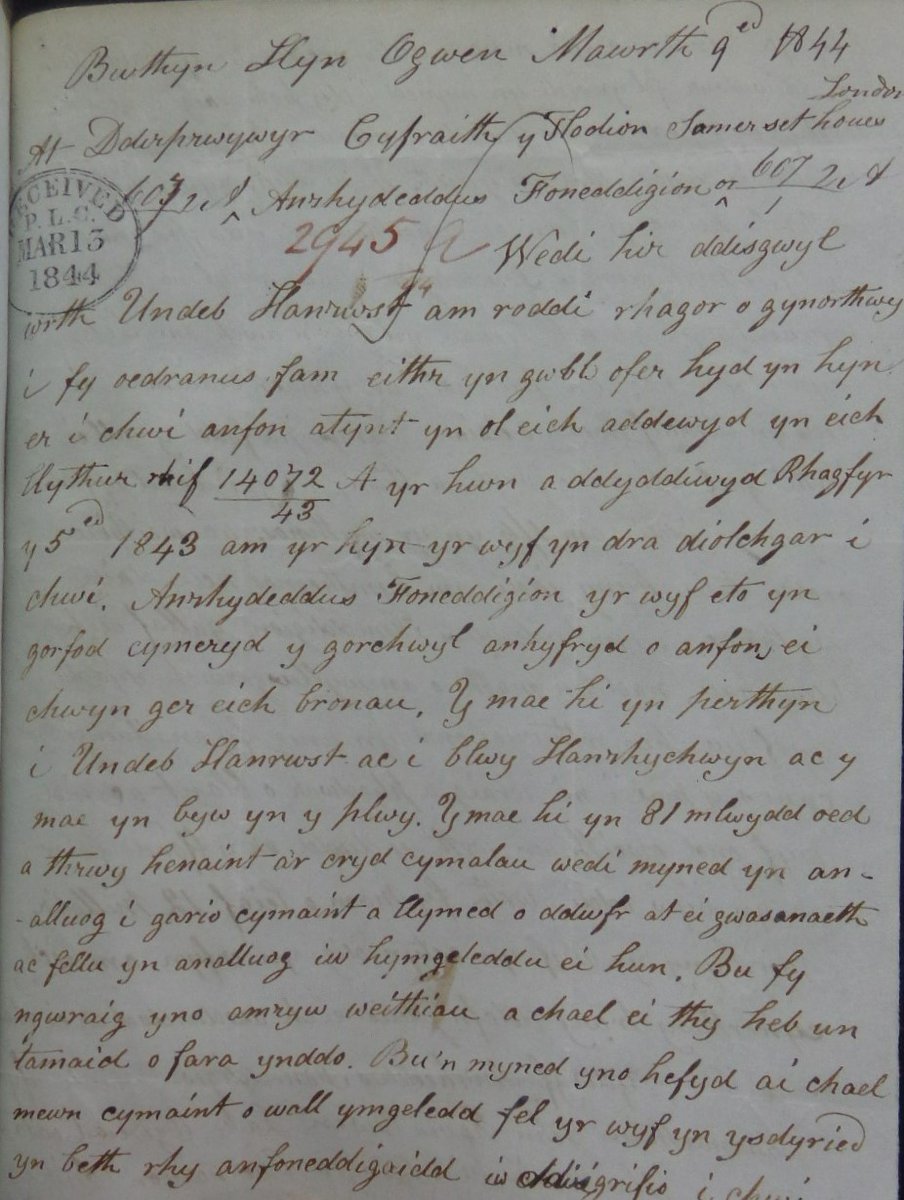 Bwthyn Llyn Ogwen Mawrth 9ed 1844
London
At Ddirprwywyr Cyfraith y Tlodion Somerset houes
607/2 A Anrhydeddus Foneddigion or 607/2 A
RECEIVED
P.L.C.
MAR 13
1844
2945 A
44
Wedi hir ddisgwyl
wrth Undeb Llanrwst am roddi rhagor o gynorthwy
i fy oedranus fam eithr yn gwbl ofer hyd yn hyn
er i chwi anfon atynt yn ol eich addewyd yn eich
llythur rhif 14072/43 A yr hwn a ddyddiwyd Rhagfyr
y 5ed 1843 am yr hyn yr wyf yn dra diolchgar i
chwi. Anrhydeddus Foneddigion yr wyf eto yn
gorfod cymeryd y gorchwyl anhyfryd o anfon ei
chwyn ger eich bronau. Y mae hi yn perthyn
i Undeb Llanrwst ac i blwy Llanrhychwyn ac y
mae yn byw yn y plwy. Y mae hi yn 81 mlwydd oed
a thrwy henaint a'r cryd cymalau wedi myned yn an-
-alluog i gario cymaint a llymed o ddwfr at ei gwasanaeth
ac fellu yn analluog iw hymgeleddu ei hun. Bu fy
ngwraig yno amryw weithiau a chael ei thy heb un
tamaid o fara ynddo. Bu'n myned yno hefyd ai chael
mewn cymaint o wall ymgeledd fel yr wyf yn ysdyried
yn beth rhy anfoneddigaidd iw ddisgrifio i chwi